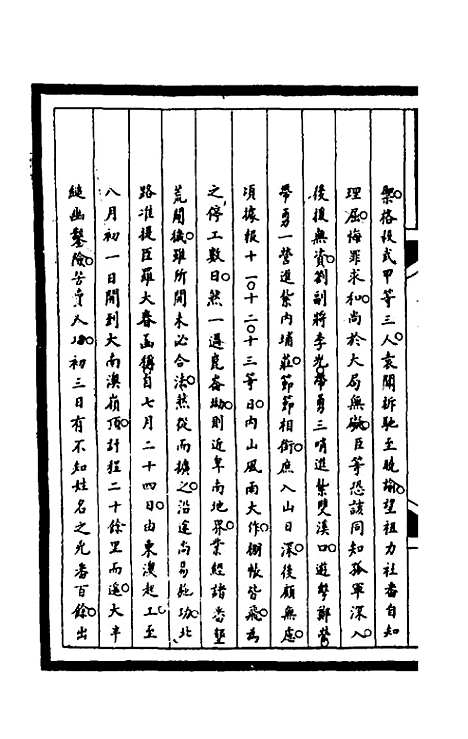 禦格殺武甲等三人袁聞訴馳至曉諭望祖力社番自知
理屈悔罪求和尚於大局無礙臣等恐該同知孤軍深入
後援無資劉副將李光帶勇三哨進紮雙溪口遊擊鄭榮
帶勇一營進紮內埔莊節節相銜庶入山日深後顧無虞
項據報十一十二十三等日內山風雨大作棚帳皆飛為
之停工數日然一過崑崙坳則近卑南地界業經諸番墾
荒開徑雖所開未必合法然從而擴之沿途尚易施功北
路准提臣羅大春函稱自七月二十四日由東澳起工至
八月初一日開到大南澳嶺頂計程二十餘里而遙大半
縋幽鑿險苦費人功初三日有不知姓名之兇番百餘出